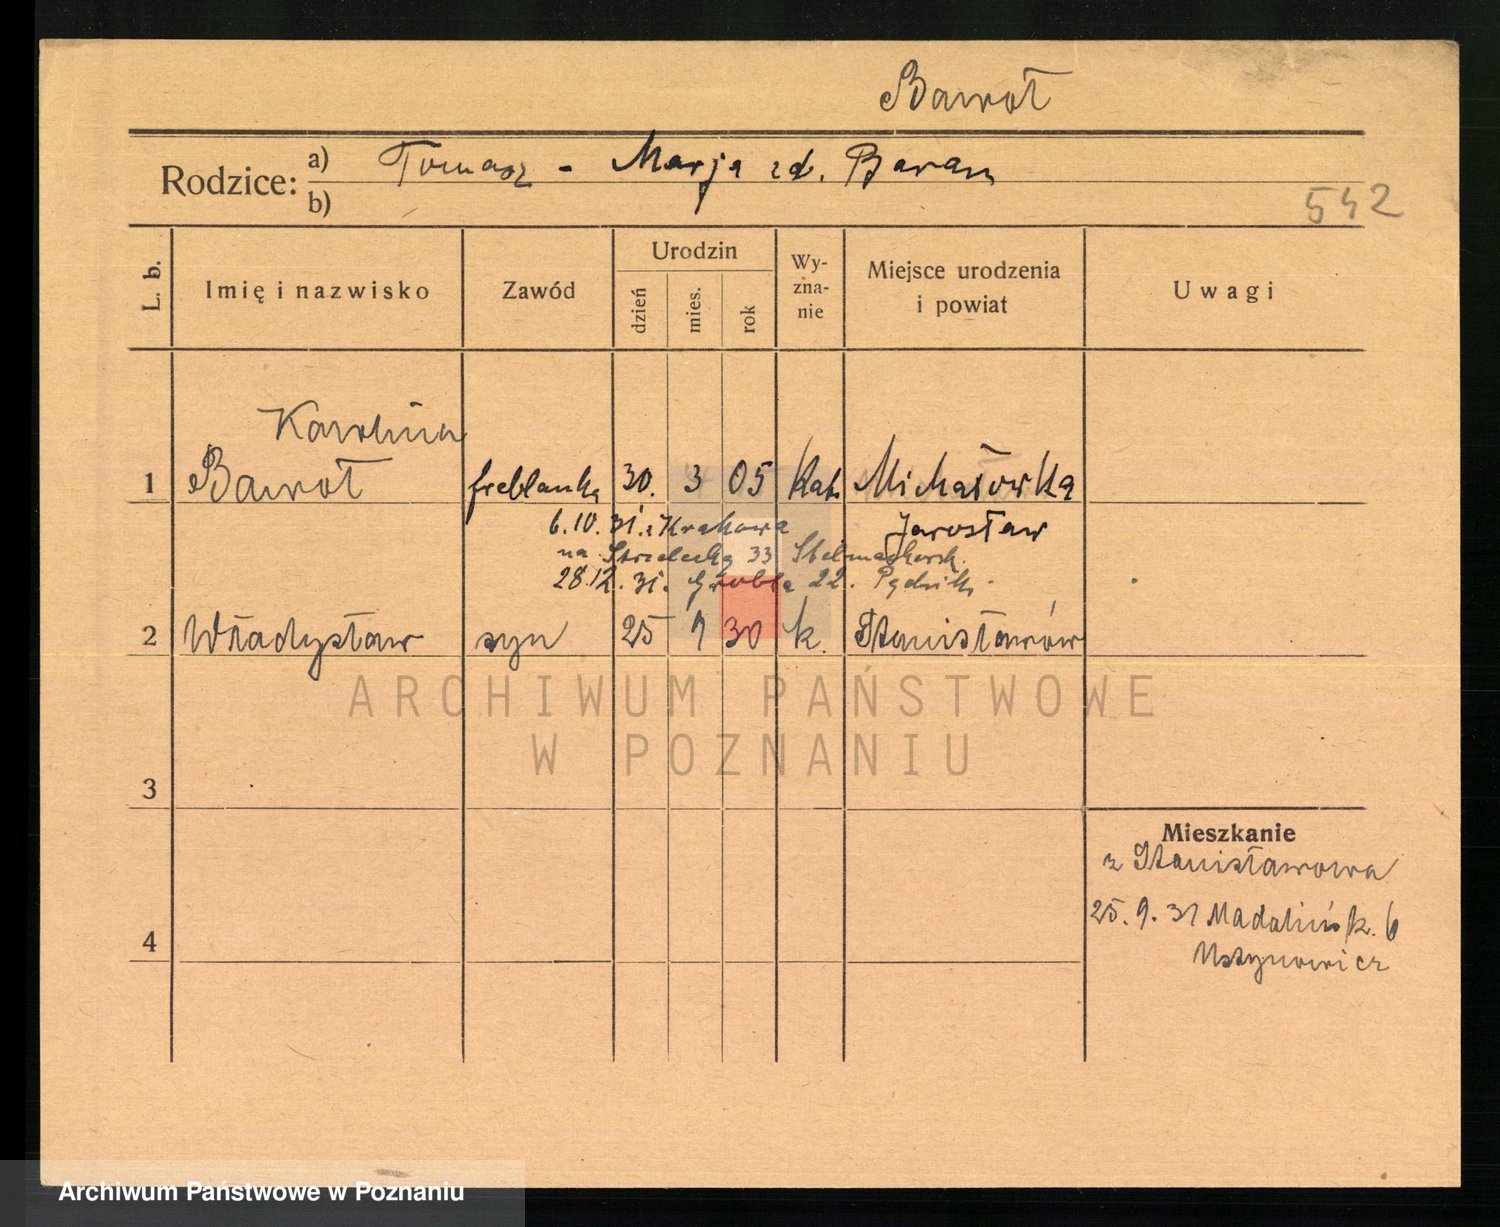 Bawoł
Rodzice: a) Tomasz - Marja zd. Baran
b)
542
L. b.
Imię i nazwisko
Zawód
Urodzin
dzień
mies.
rok
Wy-
zna-
nie
Miejsce urodzenia
i powiat
Uwagi
Karolina
1 Bawoł freblanka 30. 3 05 kat. Michałówka
6.10.31. z Krakowa Jarosław
na Strzelecką 33
28.12.31. Grobla 22.
2 Władysław syn 25 9 30 k. Stanisławów
ARCHIWUM PAŃSTWOWE
W POZNANIU
3
Mieszkanie
z Stanisławowa
25. 9. 31 Madalińsk. 6
Ustynowicz
4
Archiwum Państwowe w Poznaniu